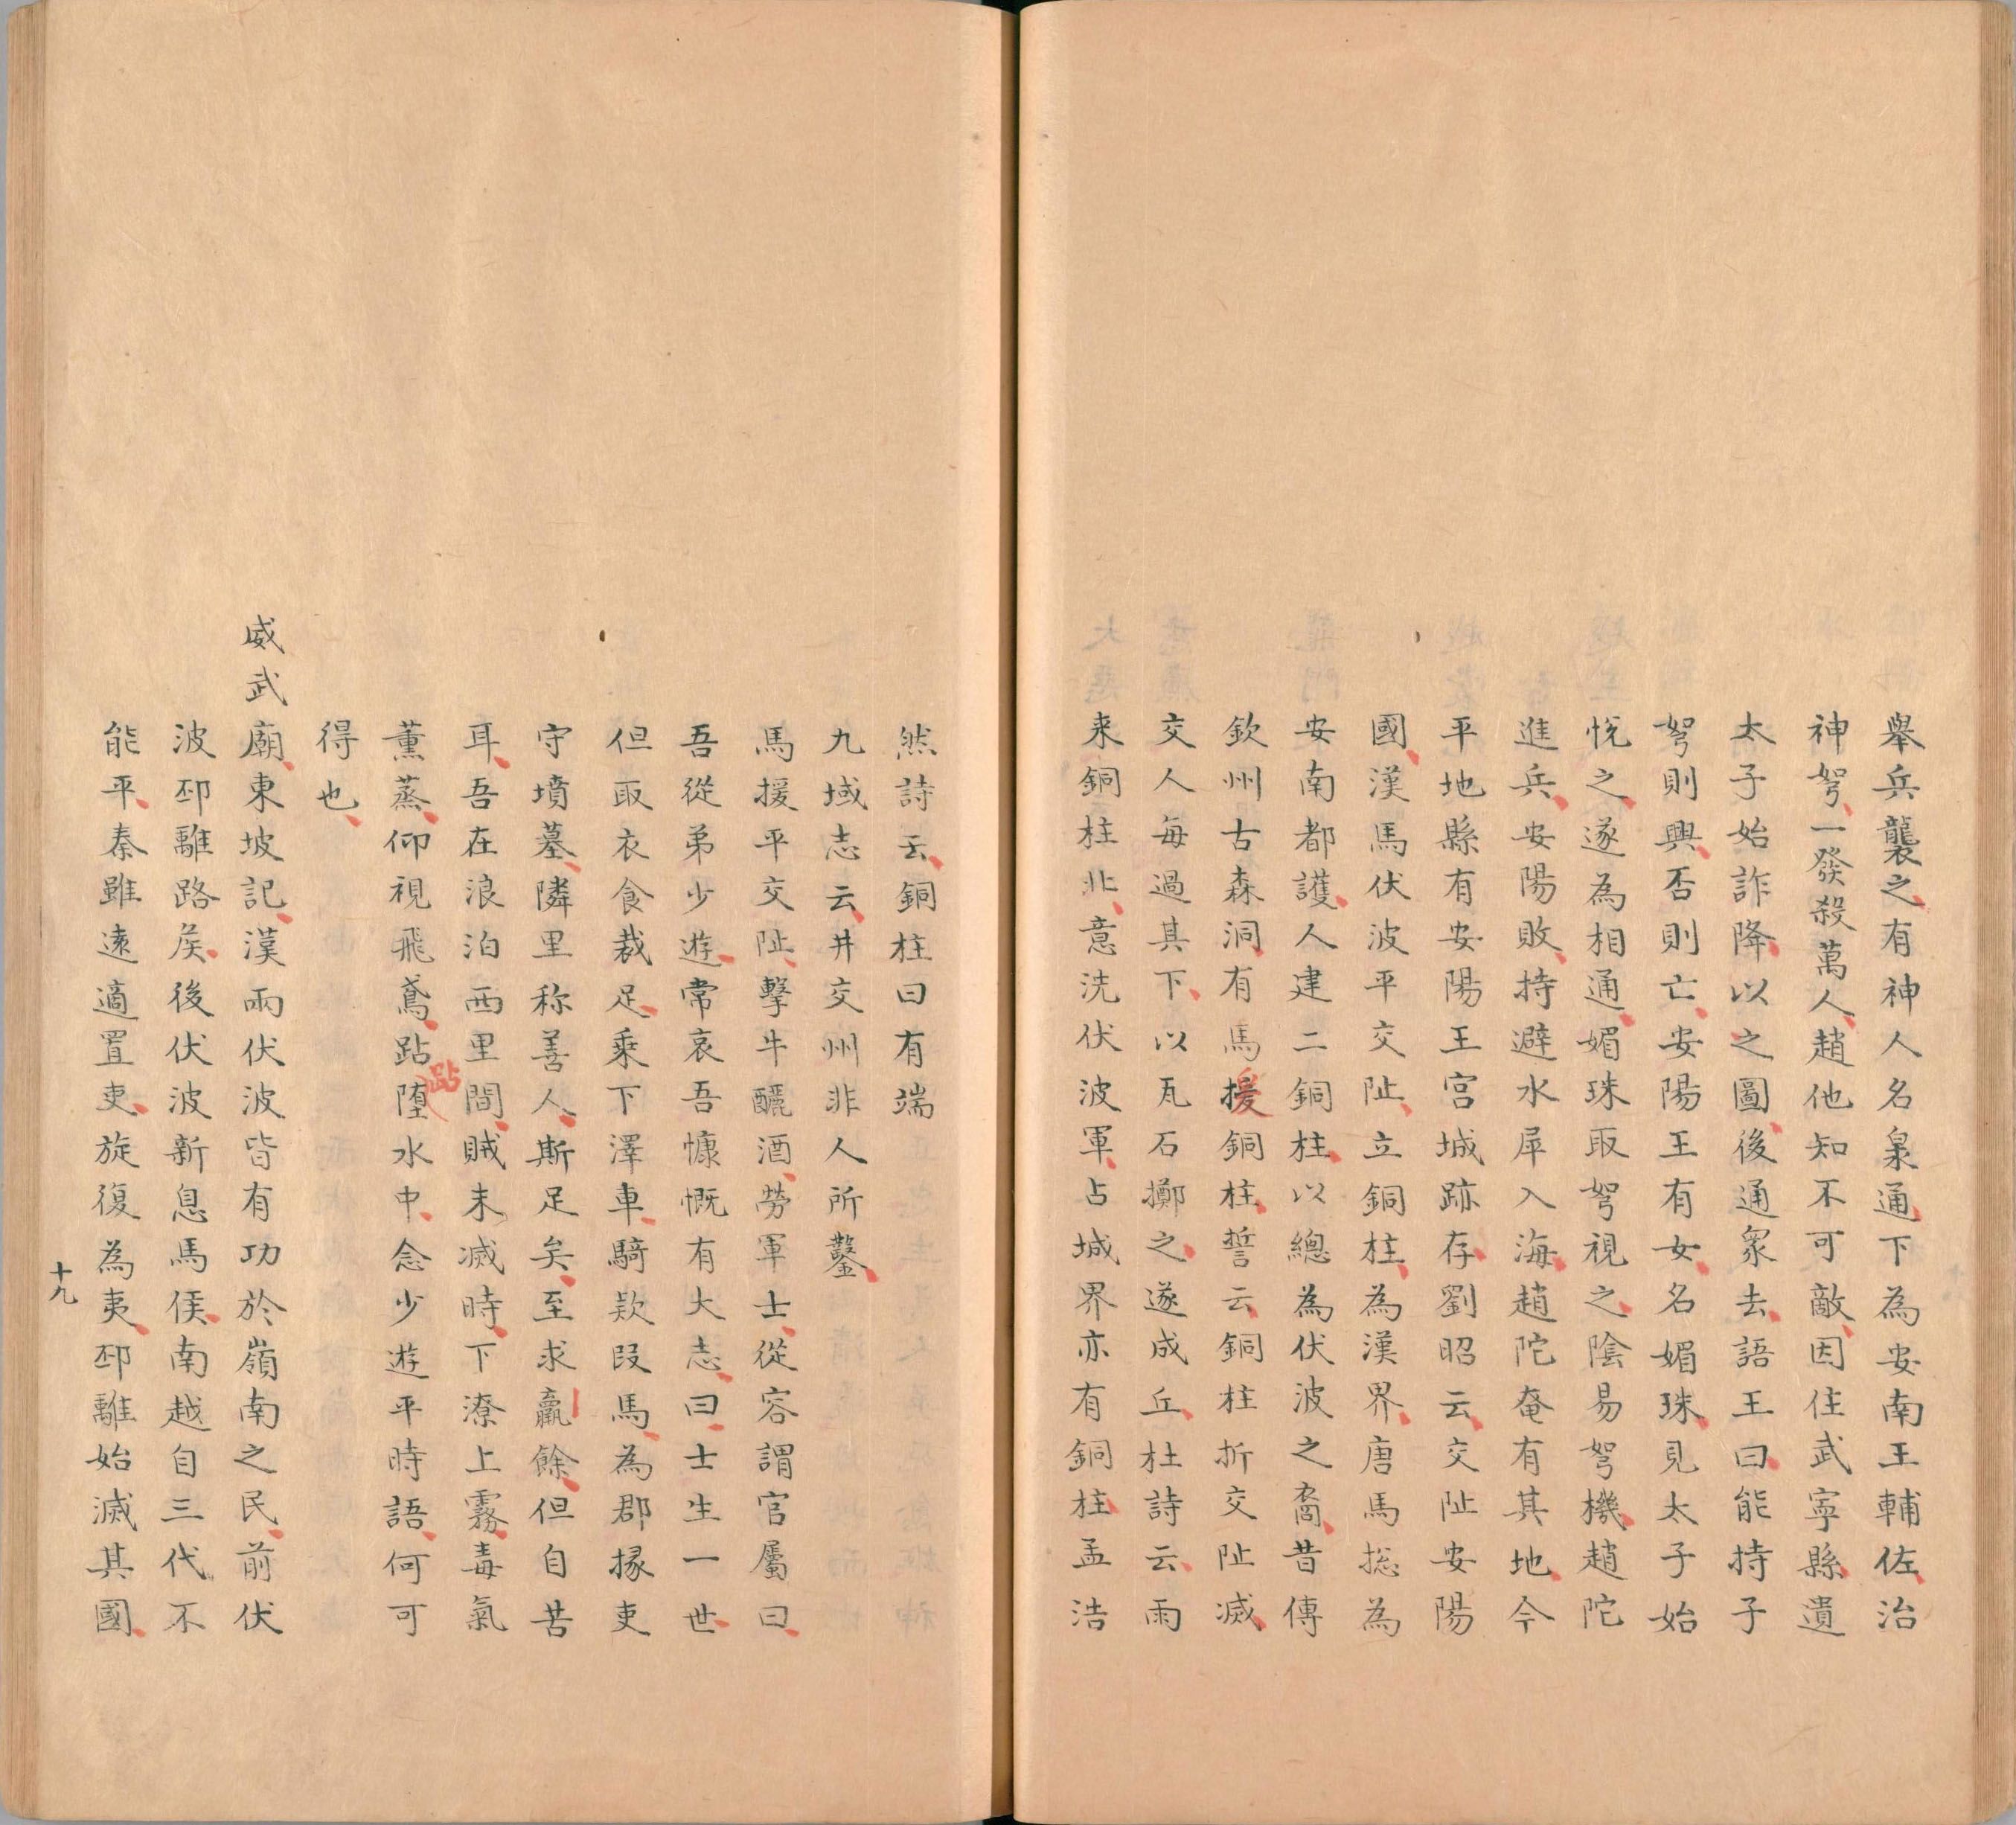 舉兵襲之有神人名臯通下為安南王輔佐治
神弩一發殺萬人趙他知不可敵因住武寧縣遺
太子始詐降以之圖後通衆去語王曰能持子
弩則興否則亡安陽王有女名媚珠見太子始
悅之遂為相通媚珠取弩視之陰易弩機趙陀
進兵安陽敗持避水犀入海趙陀奄有其地今
平地縣有安陽王宮城跡存劉昭云交阯安陽
國漢馬伏波平交阯立銅柱為漢界唐馬捴為
安南都護人建二銅柱以總為伏波之裔昔傳
欽州古森洞有馬援銅柱誓云銅柱折交阯滅
交人每過其下以瓦石擲之遂成丘杜詩云雨
来銅柱北意洗伏波軍占城界亦有銅柱孟浩
然詩云銅柱日有端
九域志云井交州非人所鑿
馬援平交阯擊牛釃酒勞軍士從容謂官屬曰
吾從弟少遊常哀吾慷慨有大志曰士生一世
但取衣食裁足乘下澤車騎款段馬為郡掾吏
守墳墓隣里称善人斯足矣至求贏餘但自苦
耳吾在浪泊西里間賊未滅時下潦上霧毒氣
薰蒸仰視飛鳶跕跕墮水中念少遊平時語何可
得也
威武廟東坡記漢兩伏波皆有功於嶺南之民前伏
波邳離路矦後伏波新息馬侯南越自三代不
能平秦雖遠適置吏旋復為夷邳離始滅其國
十九